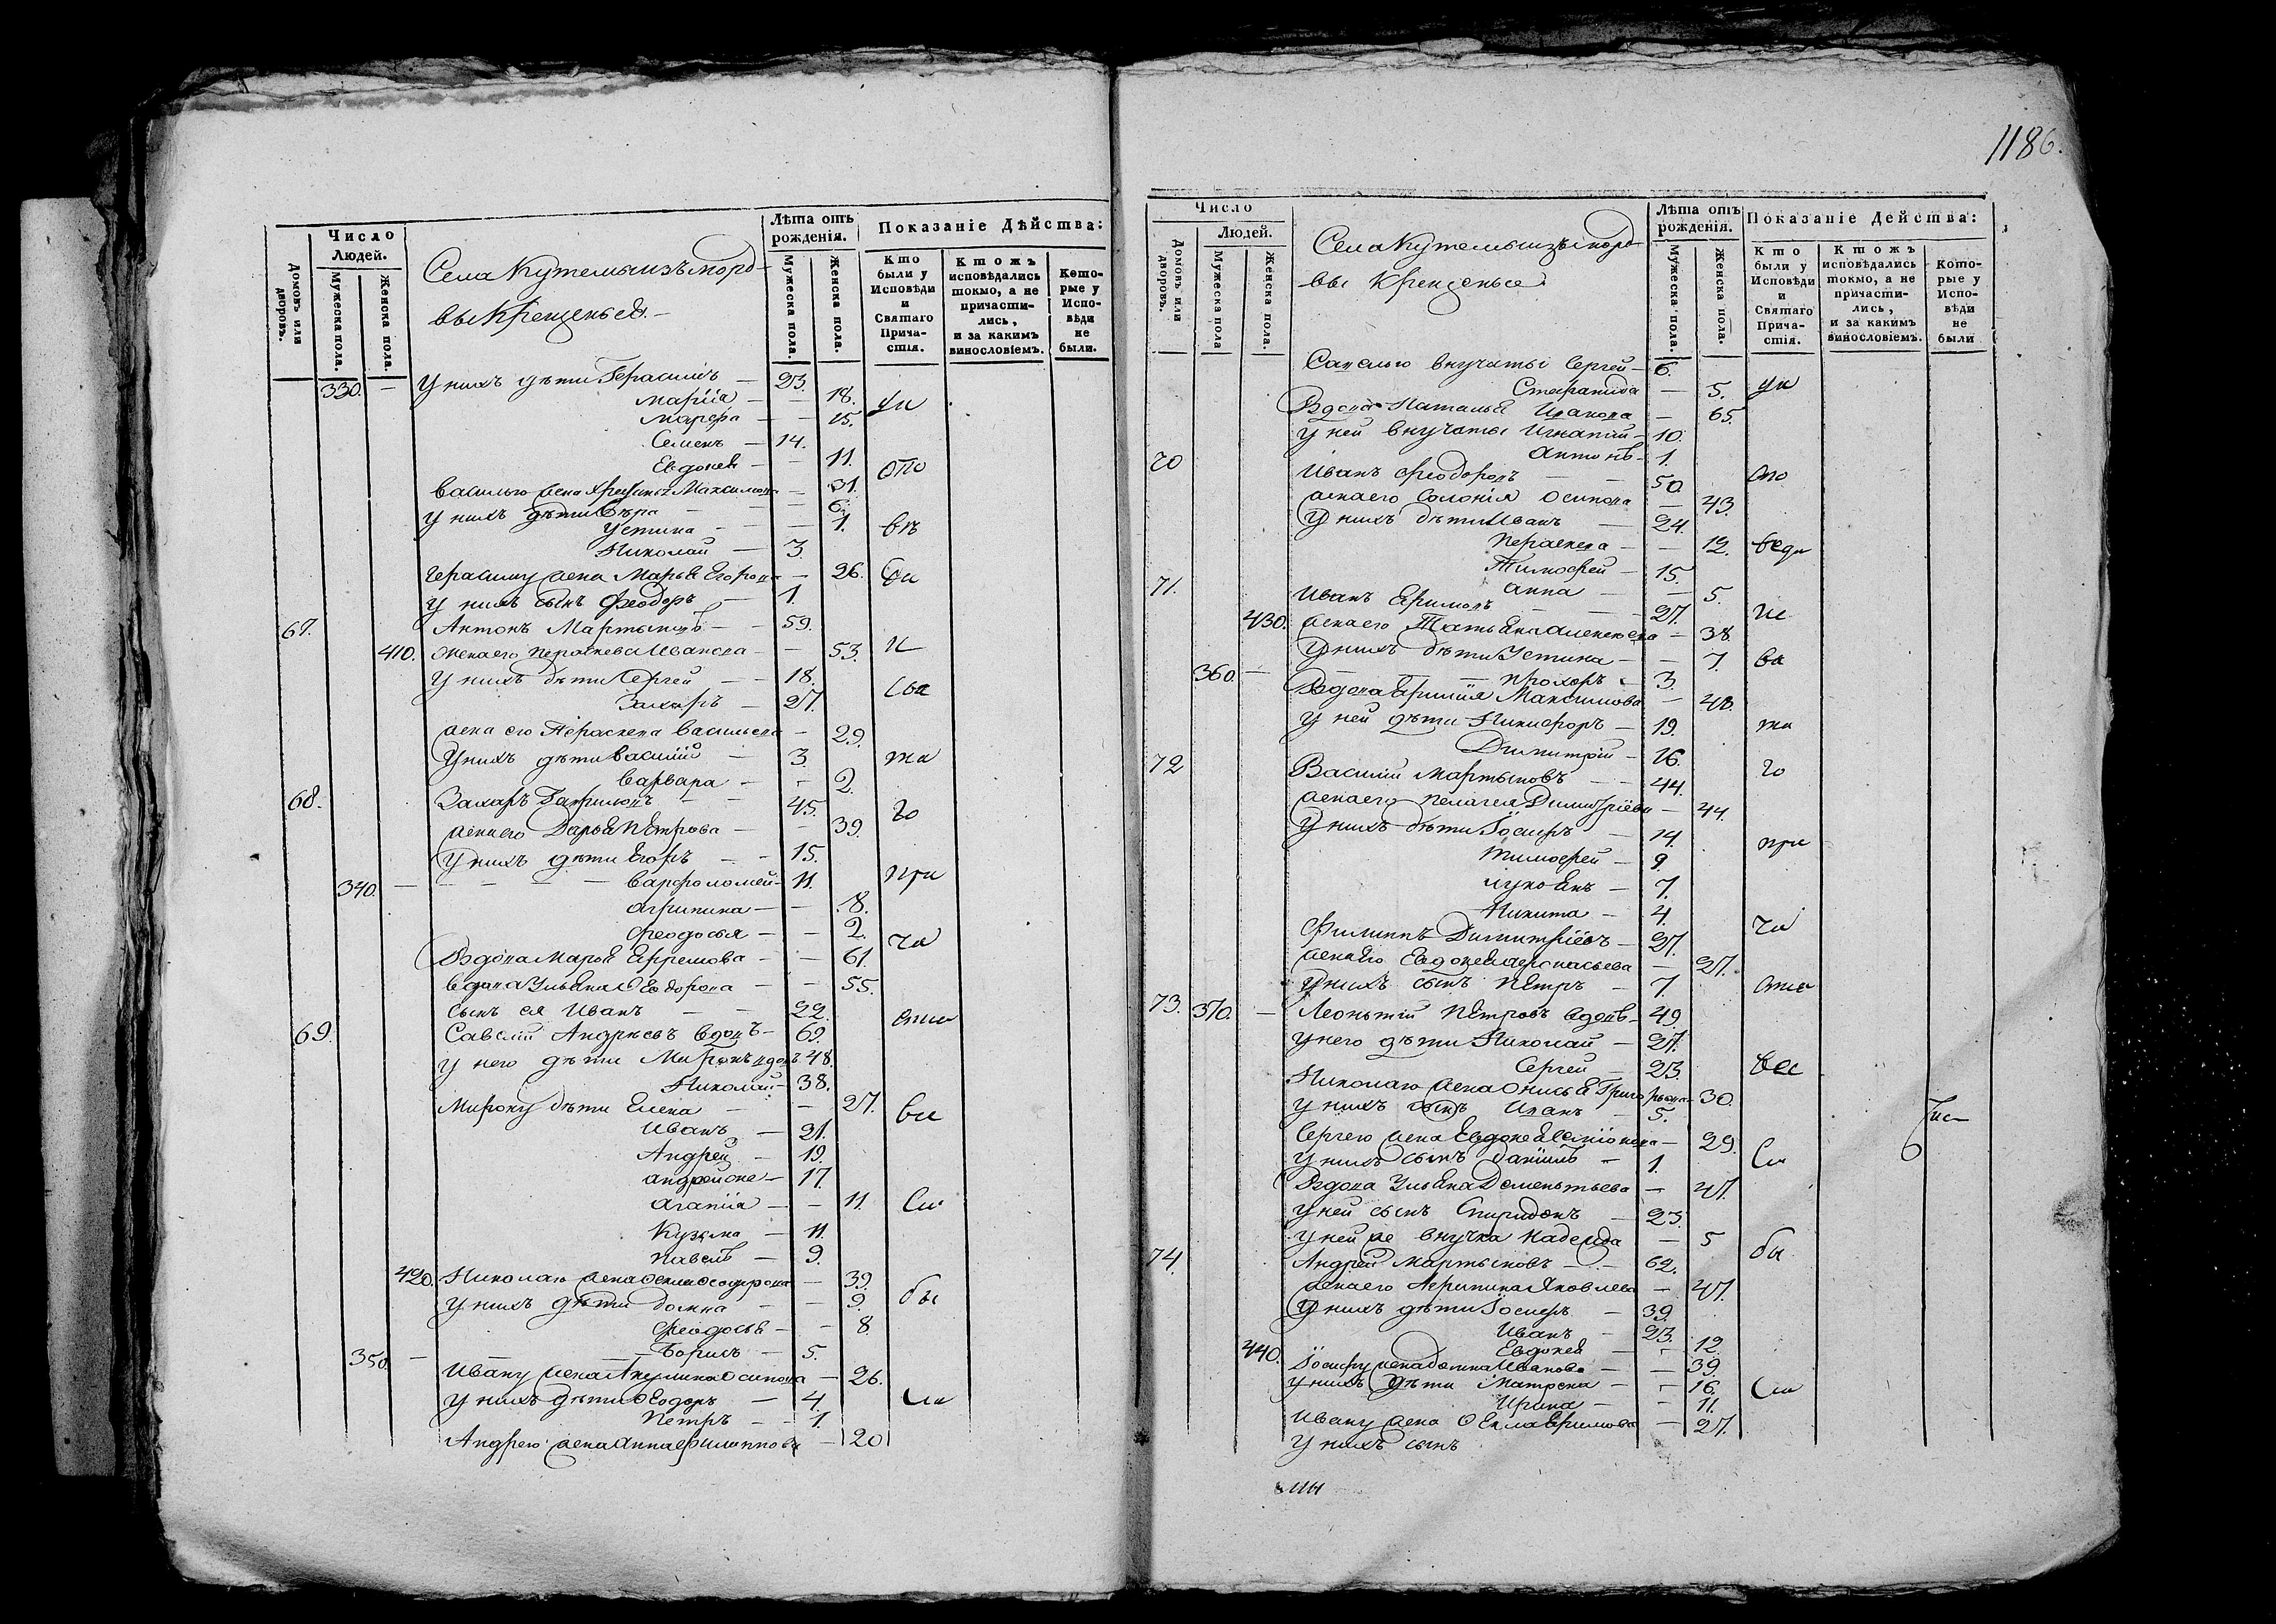 Число
Людей.
Домовъ или дворовъ.
Мужеска пола.
Женска пола.
Села Кутемы изъ морд-
вы Крещеныя.
Лѣта отъ рожденія.
Мужеска пола.
Женска пола.
Показаніе Дѣйства:
Кто были у Исповѣди и Святаго Причастія.
Ктожъ исповѣдались токмо, а не причастились, и за какимъ винословіемъ.
Которые у Исповѣди не были.
330. — У нихъ дѣти Герасимъ — 23.
Маріа — — 18. Ѵи
Марѳа — — 15.
Семенъ — 14.
Евдокея — — 11. ото
Василью жена Максимова — 31.
У нихъ дѣти Вѣра — — 6.
Устина — — 1.
Николай — 3
Герасиму жена Марья Егорова — 26.
У нихъ сынъ Феодоръ — 1.
67. Антонъ Мартыновъ — 59.
410. жена его Парасковья Иванова — 53. и
У нихъ дѣти Сергей — — 18. Свя
Захаръ — 27.
жена его Параскева Васильева — 29.
У нихъ дѣти Василій — 3. та
Варвара — — 2.
68. Захаръ Гавриловъ — — 45. го
жена его Дарья Петрова — — 39.
У нихъ дѣти Егоръ — — 15.
340. — Варфоломей — 11. при
Агрипина — — 8.
Феодосья — — 2. ча
Вдова Марья Ефремова — — 61.
Вдова Ульяна Ѳеодорова — — 55.
Сынъ ея Иванъ — — 22. стіи
69. Савелій Андреевъ вдовъ — 69.
У него дѣти Миронъ вдовъ 48.
Николай — 38.
Мирону дѣти Елена — — 27. вси
Иванъ — 21.
Андрей — 19.
17.
Агапіа — — 11. Си
Кузьма — 11.
Павелъ — 9.
420. Николаю жена — 39.
У нихъ дѣти Домна — — 9. бы
Феодосья — — 8.
350. — Борисъ — 5.
Ивану жена Акулина Осипова — 26.
У нихъ дѣти Ѳеодоръ — 4. ли
Петръ — — 1.
Андрею жена Анна Филиппова — 20
1186.
Число
Людей.
Домовъ или дворовъ.
Мужеска пола
Женска пола.
Села Кутемы изъ морд-
вы Крещеные
Лѣта отъ рожденія.
Мужеска пола.
Женска пола.
Показаніе Действа:
Кто были у Исповѣди и Святаго Причастія.
Ктожъ исповѣдались токмо, а не причастились, и за какимъ винословіемъ.
Которые у Исповѣди не были
внучаты Сергей — 6.
Стефанида — 5.
Вдова Наталья — 65.
У ней внучаты Игнатій — 10.
Антонъ — 1.
70 Иванъ Феодоровъ — — 50
жена его Соломія Осипова — 43.
У нихъ дѣти Иванъ — 24.
Параскева — — 12.
Тимофей — 15.
Анна — — 5.
71. Иванъ Ефимовъ — — 27.
430. жена его Татьяна Алексеева — 38.
У нихъ дѣти Устина — — 7.
360. — Прохоръ — 3.
Вдова Максимова — 48.
У ней дѣти Никифоръ — 19. та
Димитрій — 16.
72 Василій Мартыновъ — — 44. го
жена его Пелагея Димитріева — 44.
У нихъ дѣти Іосифъ — 14. при
Тимофей — 9.
Лукоянъ — 7.
Никита — 4. ча
Филиппъ Димитріевъ — 27.
жена его Евдокея Афонасьева — 27.
У нихъ сынъ Петръ — 7. стіи
73. 370. — Леонтій Петровъ вдовъ — 49.
У него дѣти Николай — 27.
Сергей — 23. все
Николаю жена Онисья Григорьева — 30.
У нихъ сынъ Иванъ — 5.
Сергею жена Евдокея — 29.
У нихъ сынъ Даніилъ — 1. Си
Вдова Ульяна Дементьева — 47.
У ней сынъ Спиридонъ — 23.
У ней же внучка Надежда — 5
74. Андрей Мартыновъ — — 62. бы
жена его Агрипина Яковлева — 47.
У нихъ дѣти Іосифъ — 39.
Иванъ — 23.
440. Евдокея — — 12.
Іосифу жена Домна Иванова — — 39.
У нихъ дѣти Матрена — — 16. ли
Ирина — — 11.
Ивану жена Ѳекла Ефимова — 27.
У нихъ сынъ